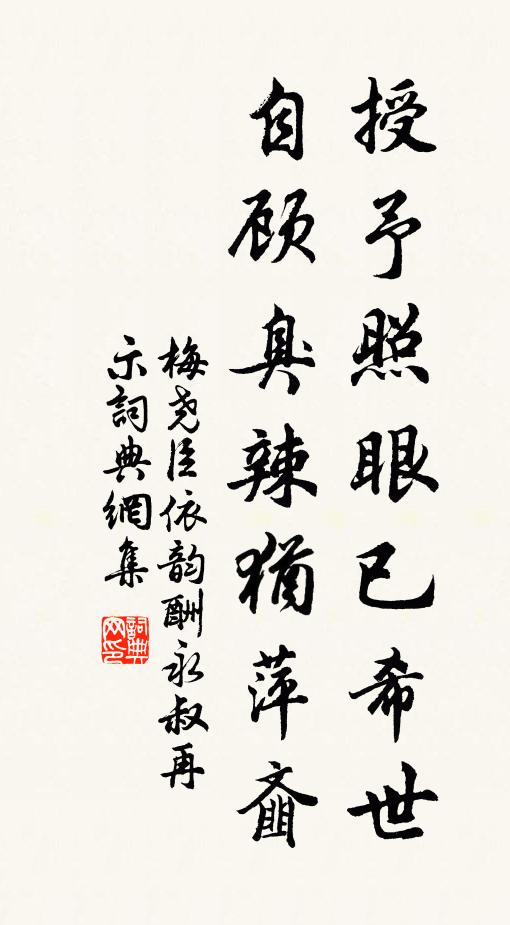 授予照眼已希世
自顾臭辣猶萍齑
梅尧臣依韵酬永叔再
示詞典網集
詞典网印